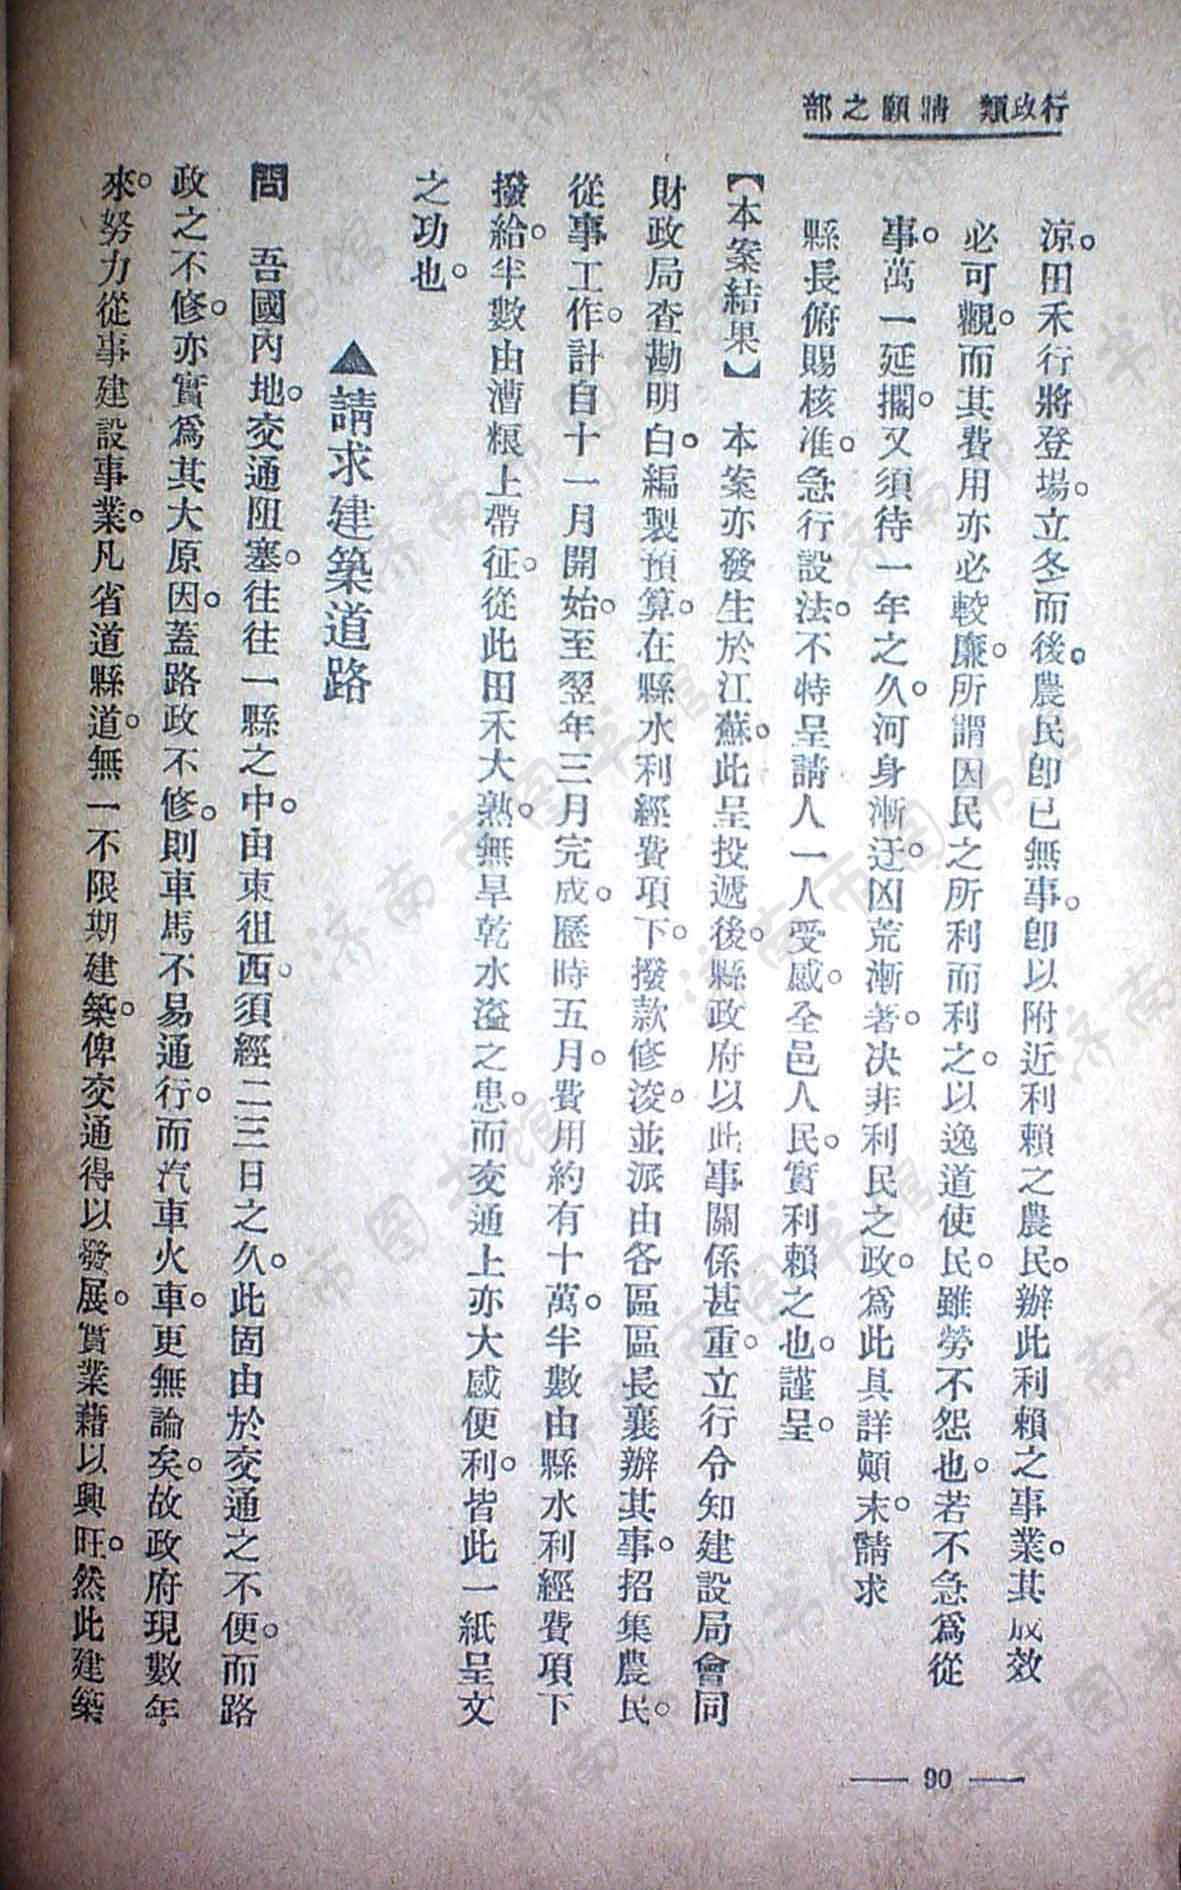 行政類　請願之部
涼。田禾行將登場。立冬而後。農民卽已無事。卽以附近利賴之農民。辦此利賴之事業。其成效
必可觀。而其費用亦必較廉。所謂因民之所利而利之。以逸道使民。雖勞不怨也。若不急爲從
事。萬一延擱。又須待一年之久。河身漸迂。凶荒漸著。决非利民之政。爲此具詳顚末。請求
縣長俯賜核准。急行設法。不特呈請人一人受感。全邑人民。實利賴之也。謹呈。
【本案結果】　本案亦發生於江蘇。此呈投遞後。縣政府以此事關係甚重。立行令知建設局會同
財政局查勘明白。編製預算。在縣水利經費項下。撥款修浚。並派由各區區長襄辦其事。招集農民。
從事工作。計自十一月開始。至翌年三月完成。歷時五月。費用約有十萬。半數由縣水利經費項下
撥給。半數由漕粮上帶征。從此田禾大熟。無旱乾水溢之患。而交通上亦大感便利。皆此一紙呈文
之功也。
▲請求建築道路
問　吾國內地。交通阻塞。往往一縣之中。由東徂西。須經二三日之久。此固由於交通之不便。而路
政之不修。亦實爲其大原因。蓋路政不修。則車馬不易通行。而汽車火車。更無論矣。故政府現數年
來。努力從事建設事業。凡省道縣道。無一不限期建築。俾交通得以發展。實業藉以興旺。然此建築
— 90 —
济南市图书馆